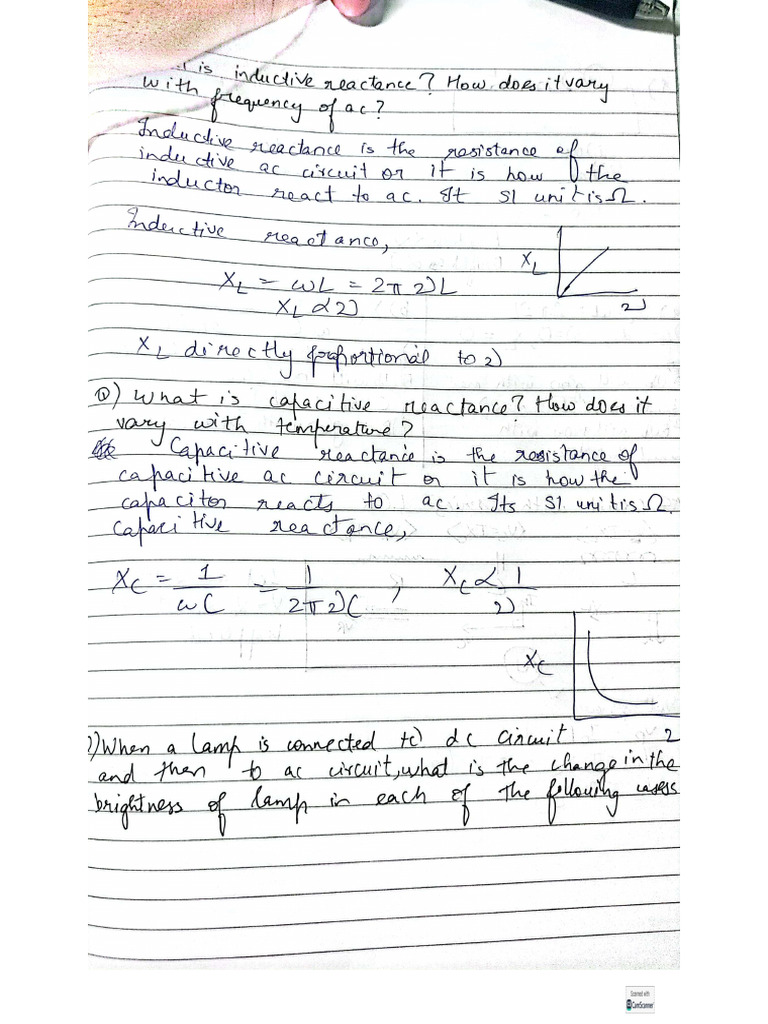 is inductive reactance? How does it vary
with frequency of ac?
Inductive reactance is the resistance of
inductive ac circuit or it is how the
inductor react to ac. It SI unit is Ω.
Inductive reactance,
X_L = ωL = 2π ν L
X_L
X_L ∝ ν
ν
X_L directly proportional to ν
Q) What is capacitive reactance? How does it
vary with temperature?
Capacitive reactance is the resistance of
capacitive ac circuit or it is how the
capacitor reacts to ac. Its SI unit is Ω.
Capacitive reactance,
X_C = 1/ωC = 1/2πνC , X_C ∝ 1/ν
X_C
ν
?) When a lamp is connected to dc circuit
and then to ac circuit, what is the change in the
brightness of lamp in each of the following cases
Scanned with
CamScanner